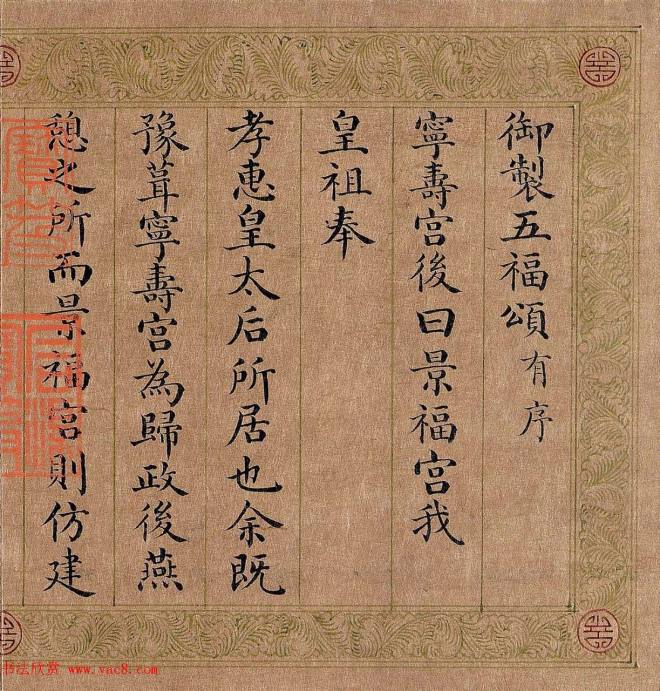 御製五福頌有序
寧壽宮後曰景福宮我
皇祖奉
孝惠皇太后所居也余既
豫葺寧壽宮為歸政後燕
憩之所而景福宮則仿建
书法欣赏 www.vac8.com